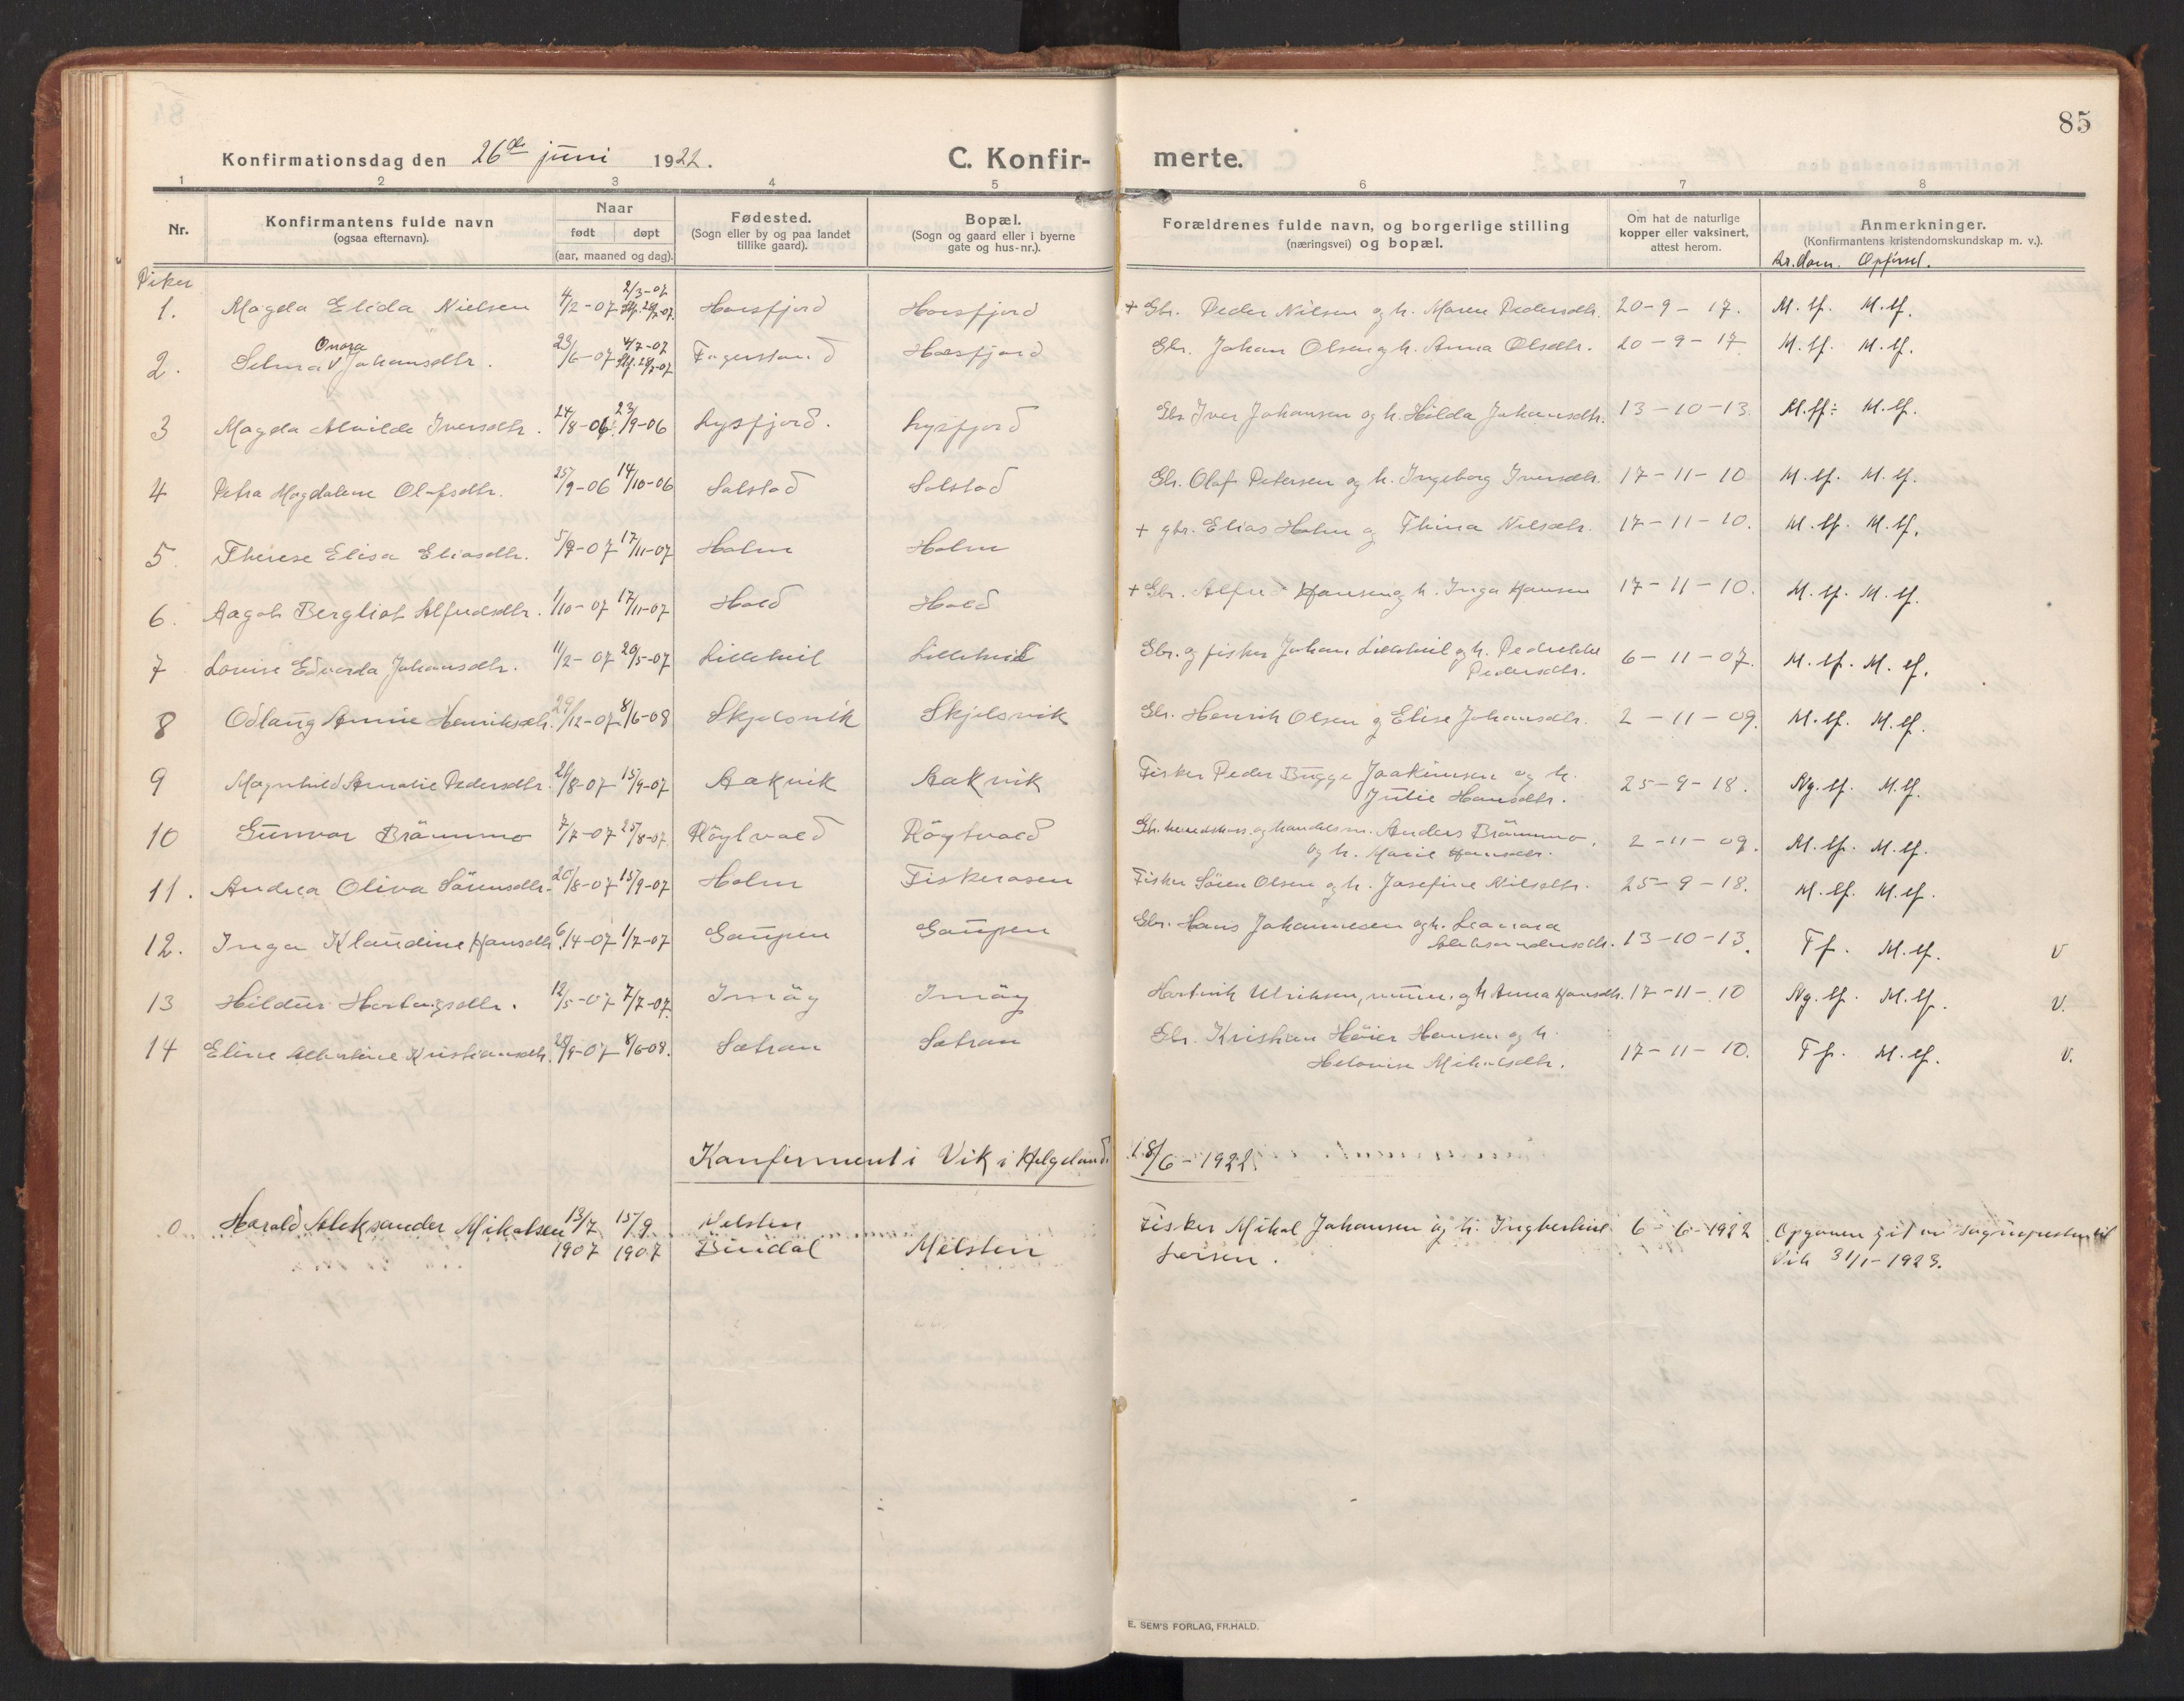 85
Konfirmationsdag den 26de juni 1922.
C. Konfirmerte.
1 2 3 4 5 6 7 8
Nr.
Konfirmantens fulde navn
(ogsaa efternavn).
Naar
født døpt
(aar, maaned og dag).
Fødested.
(Sogn eller by og paa landet
tillike gaard).
Bopæl.
(Sogn og gaard eller i byerne
gate og hus-nr.).
Forældrenes fulde navn, og borgerlige stilling
(næringsvei) og bopæl.
Om hat de naturlige
kopper eller vaksinert,
attest herom.
Anmerkninger.
(Konfirmantens kristendomskundskap m. v.).
Kr.dom. Opførsel.
Piker
1. Magda Elida Nielsen 4/2-07 2/3-07 Horsfjord Horsfjord + Gbr. Peder Nilsen og h. Maren Pedersdtr. 20-9-17. M.tf. M.tf.
2. Selma Onora Johansdtr. 23/6-07 4/7-07 Fagerstrand Horsfjord Gbr. Johan Olsen og h. Anna Olsdtr. 20-9-17 M.tf. M.tf.
3 Magda Alvilde Iversdtr. 24/8-06 23/9-06 Lysfjord. Lysfjord Gbr. Iver Johansen og h. Hilda Johansdtr. 13-10-13. M.tf. M.tf.
4 Petra Magdalene Olafsdtr. 25/9-06 14/10-06 Solstad Solstad Gbr. Olaf Petersen og h. Ingeborg Iversdtr. 17-11-10 M.tf. M.tf.
5. Therese Elisa Eliasdtr. 5/9-07 17/11-07 Holm Holm + gbr. Elias Holm og Thina Nilsdtr. 17-11-10. M.tf. M.tf.
6. Aagot Bergliot Alfredsdtr. 1/10-07 17/11-07 Hold Hold + Gbr. Alfred Hansen og h. Inga Hansen 17-11-10. M.tf. M.tf.
7 Louise Edvarda Johansdtr. 11/2-07 20/5-07 Lilleheil Lilleheil Gbr. og fisker Johan Lilleheil og h. Pedrikke
Pedersdtr. 6-11-07. M.tf. M.tf.
8 Odlaug Annie Henriksdtr. 29/12-07 8/6-08 Skjelsvik Skjelsvik Gbr. Henrik Olsen og Elise Johansdtr. 2-11-09. M.tf. M.tf.
9 Magnhild Amalie Pedersdtr. 21/8-07 15/9-07 Aakvik Aakvik Fisker Peder Bugge Joakimsen og h.
Julie Hansdtr. 25-9-18. Ng.tf. M.tf.
10 Gunvor Brämmo 7/7-07 25/8-07 Röytvold Röytvold Gbr. og handelsm. Anders Brämmo
og h. Marie Hansdtr. 2-11-09. M.tf. M.tf.
11. Andrea Oliva Sörensdtr. 20/8-07 15/9-07 Holm Fiskerosen Fisker Sören Olsen og h. Josefine Nilsdtr. 25-9-18. M.tf. M.tf.
12. Inga Klaudine Hansdtr. 6/4-07 1/7-07 Gaupen Gaupen Gbr. Hans Johannesen og h. Leonora
Aleksandersdtr. 13-10-13. T f. M.tf. V
13 Hildur Hartvigsdtr. 12/5-07 7/7-07 Imöy Imöy Hartvik Ulriksen, murer. og h Anna Hansdtr. 17-11-10 Ng.tf. M.tf. V.
14 Eline Albertine Kristiansdtr. 28/9-07 8/6-08. Sætran Sætran Gbr. Kristian Høier Hansen og h.
Helovise Mikalsdtr. 17-11-10. T f. M.tf. V.
Konfirmert i Vik i Helgeland 18/6-1922.
0 Harald Aleksander Mikalsen 13/7 1907 15/9 1907 Melsten
Bindal Melsten Fisker Mikal Johansen og h. Ingberhine
Larsen. 6-6-1922 Opgaven git av sognepresten til
Vik 31/1-1923.
E. SEM'S FORLAG, FR.HALD.